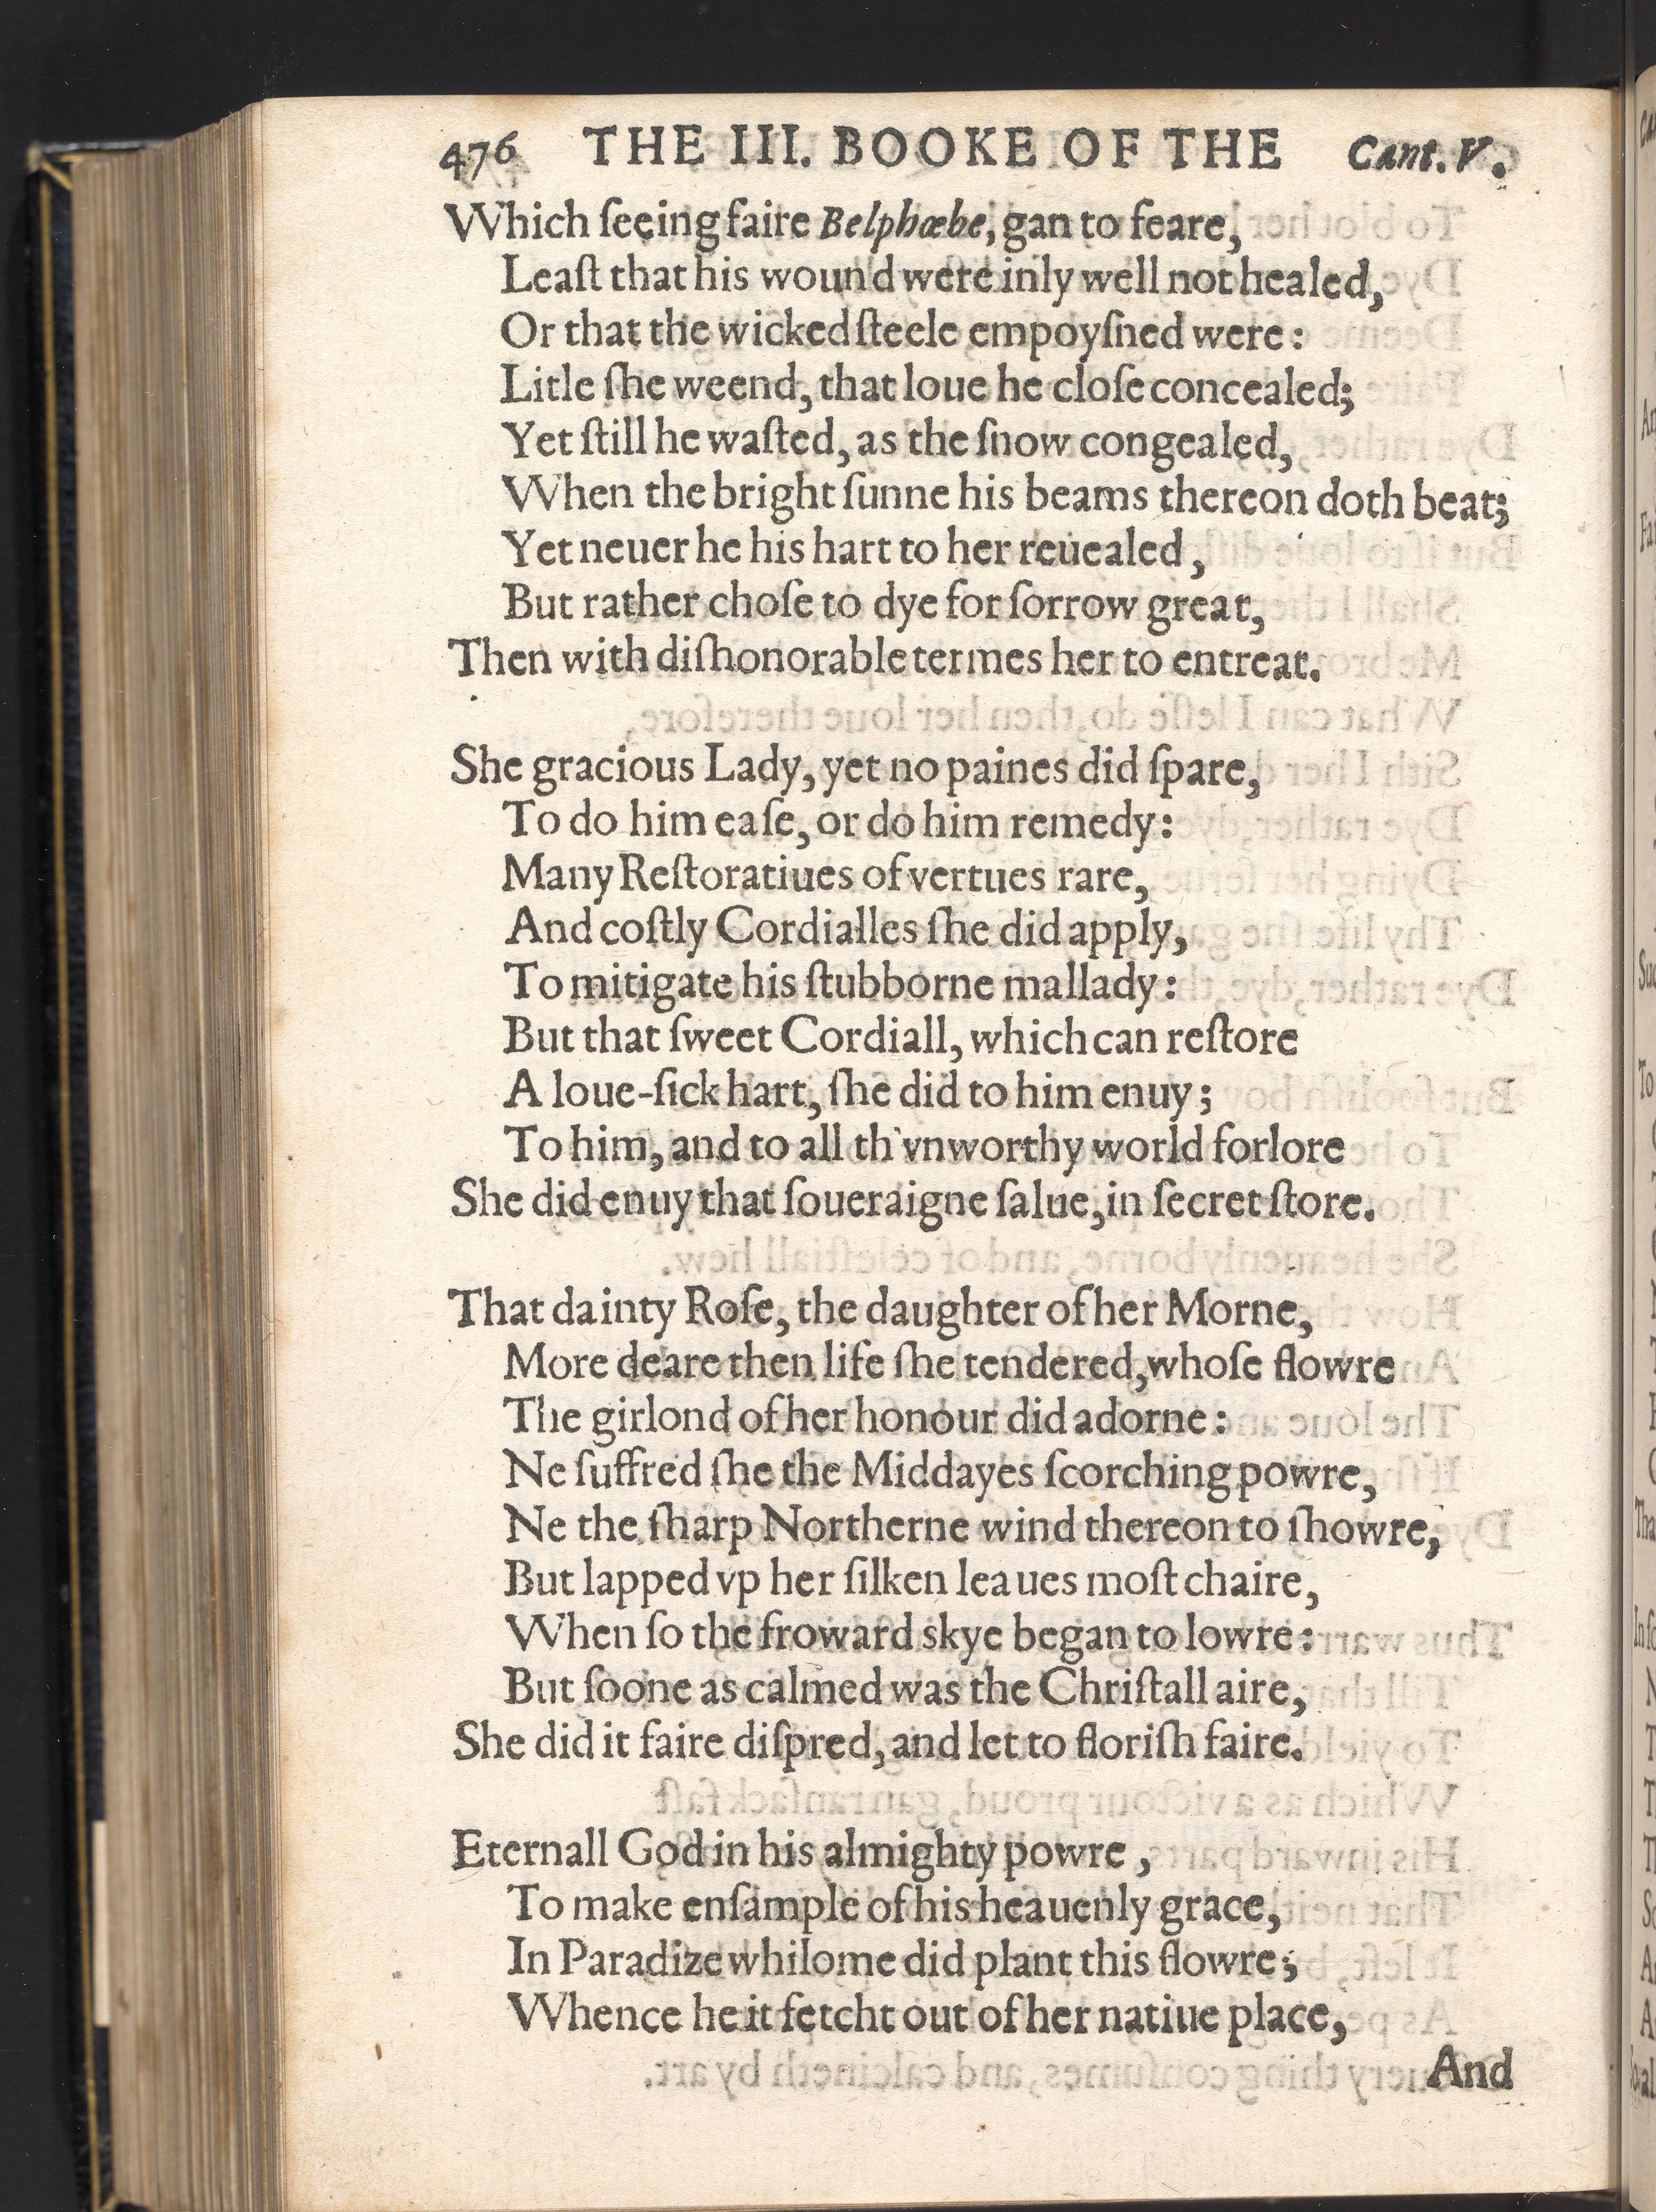 476 THE III. BOOKE OF THE Cant. V.
Which ſeeing faire Belphœbe, gan to feare,
Leaſt that his wound were inly well not healed,
Or that the wicked ſteele empoyſned were:
Litle ſhe weend, that loue he cloſe concealed;
Yet ſtill he waſted, as the ſnow congealed,
When the bright ſunne his beams thereon doth beat;
Yet neuer he his hart to her reuealed,
But rather choſe to dye for ſorrow great,
Then with diſhonorable termes her to entreat.
She gracious Lady, yet no paines did ſpare,
To do him eaſe, or do him remedy:
Many Reſtoratiues of vertues rare,
And coſtly Cordialles ſhe did apply,
To mitigate his ſtubborne mallady:
But that ſweet Cordiall, which can reſtore
A loue-ſick hart, ſhe did to him enuy;
To him, and to all th'vnworthy world forlore
She did enuy that ſoueraigne ſalue, in ſecret ſtore.
That dainty Roſe, the daughter of her Morne,
More deare then life ſhe tendered, whoſe flowre
The girlond of her honour did adorne:
Ne ſuffred ſhe the Middayes ſcorching powre,
Ne the ſharp Northerne wind thereon to ſhowre,
But lapped vp her ſilken leaues moſt chaire,
When ſo the froward skye began to lowre:
But ſoone as calmed was the Chriſtall aire,
She did it faire diſpred, and let to floriſh faire.
Eternall God in his almighty powre,
To make enſample of his heauenly grace,
In Paradize whilome did plant this flowre;
Whence he it fetcht out of her natiue place,
And